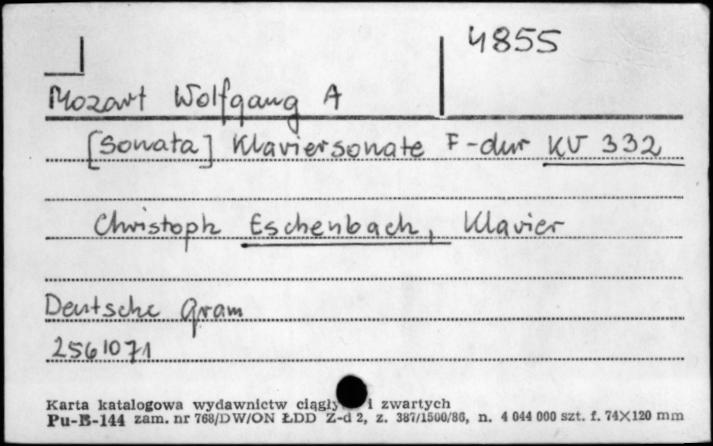 4855
Mozart Wolfgang A
[Sonata] Klaviersonate F-dur KV 332
Christoph Eschenbach, Klavier
Deutsche Gram
2561071
Karta katalogowa wydawnictw ciągły i zwartych
Pu-B-144 zam. nr 768/DW/ON ŁDD Z-d 2, z. 387/1500/86, n. 4 044 000 szt. f. 74×120 mm